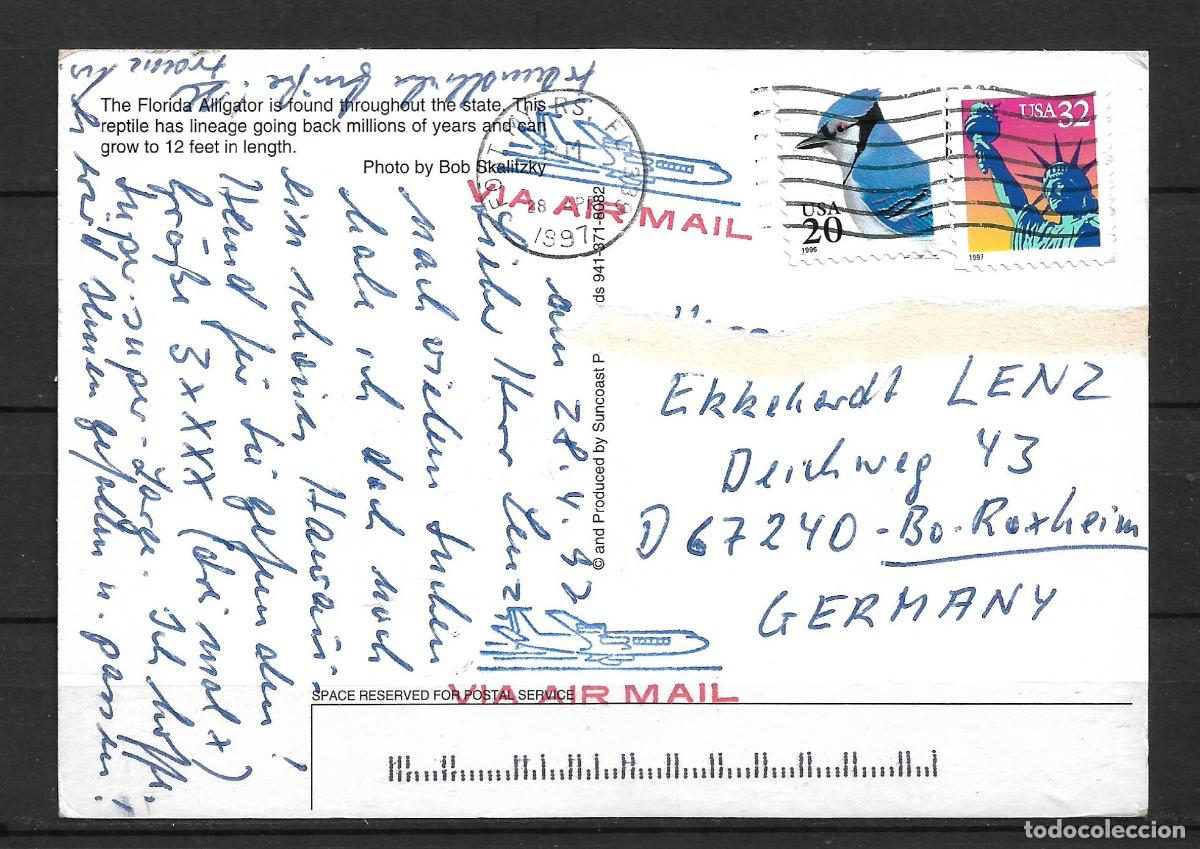 The Florida Alligator is found throughout the state. This
reptile has lineage going back millions of years and can
grow to 12 feet in length.
Photo by Bob Skalitzky
USA
20
1996
USA 32
1997
FORT MYERS, FL 339
28 APR
1997
VIA AIR MAIL
© and Produced by Suncoast P ds 941-371-8082
am 28.4.97
Liebe Herr Lenz,
nach vielem Suchen
habe ich doch noch
ein schönes Hawaii-
Hemd für Sie gefunden!
Größe 3XXX (drei mal x)
Super-super-Large. Ich hoffe,
es wird Ihnen gefallen u. passen!
freundliche Grüße
Ekkehardt LENZ
Deichweg 43
D 67240-Bo-Roxheim
GERMANY
VIA AIR MAIL
SPACE RESERVED FOR POSTAL SERVICE
todocoleccion